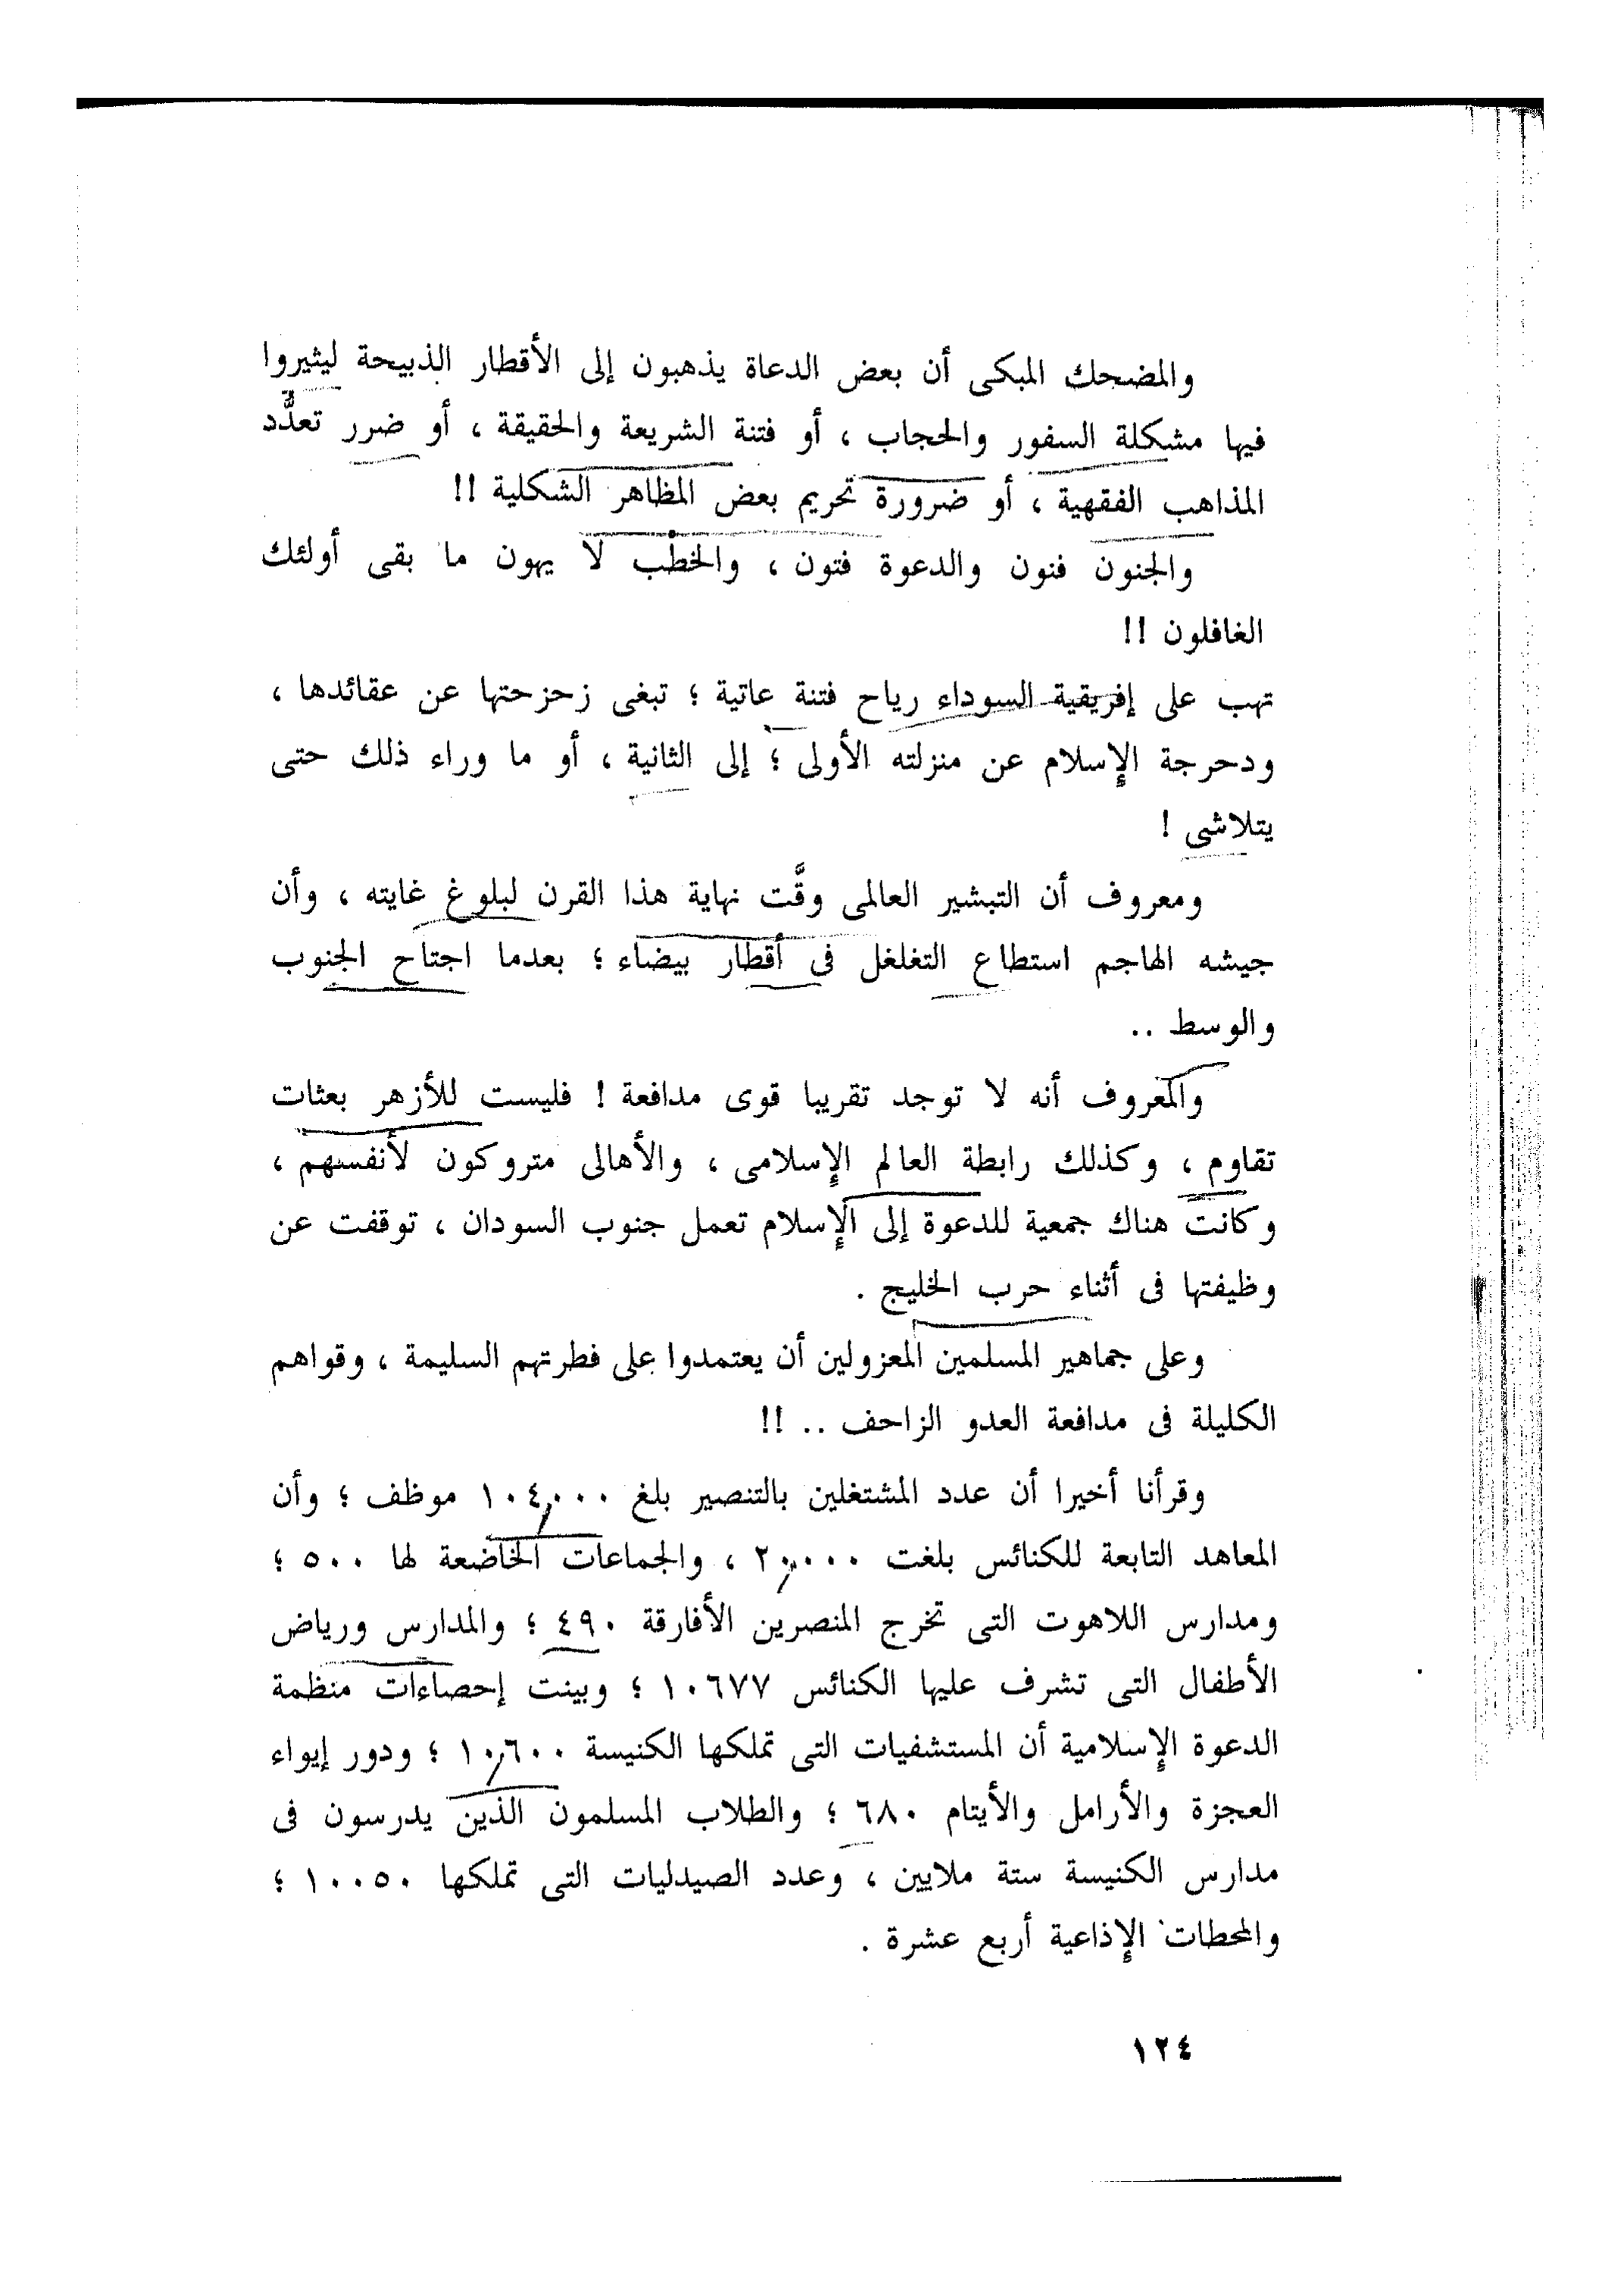 والمضحك المبكى أن بعض الدعاة يذهبون إلى الأقطار الذبيحة ليثيروا
فيها مشكلة السفور والحجاب ، أو فتنة الشريعة والحقيقة ، أو ضرر تعدُّد
المذاهب الفقهية ، أو ضرورة تحريم بعض المظاهر الشكلية !!
والجنون فنون والدعوة فتون ، والخطْب لا يهون ما بقى أولئك
الغافلون !!
تهب على إفريقية السوداء رياح فتنة عاتية ؛ تبغى زحزحتها عن عقائدها ،
ودحرجة الإسلام عن منزلته الأولى ؛ إلى الثانية ، أو ما وراء ذلك حتى
يتلاشى !
ومعروف أن التبشير العالمى وقَّت نهاية هذا القرن لبلوغ غايته ، وأن
جيشه الهاجم استطاع التغلغل فى أقطار بيضاء ؛ بعدما اجتاح الجنوب
والوسط ..
والمعروف أنه لا توجد تقريبا قوى مدافعة ! فليست للأزهر بعثات
تقاوم ، وكذلك رابطة العالم الإسلامى ، والأهالى متروكون لأنفسهم ،
وكانت هناك جمعية للدعوة إلى الإسلام تعمل جنوب السودان ، توقفت عن
وظيفتها فى أثناء حرب الخليج .
وعلى جماهير المسلمين المعزولين أن يعتمدوا على فطرتهم السليمة ، وقواهم
الكليلة فى مدافعة العدو الزاحف .. !!
وقرأنا أخيرا أن عدد المشتغلين بالتنصير بلغ ١٠٤,٠٠٠ موظف ؛ وأن
المعاهد التابعة للكنائس بلغت ٢٠,٠٠٠ ، والجماعات الخاضعة لها ٥٠٠ ؛
ومدارس اللاهوت التى تخرج المنصرين الأفارقة ٤٩٠ ؛ والمدارس ورياض
الأطفال التى تشرف عليها الكنائس ١٠٦٧٧ ؛ وبينت إحصاءات منظمة
الدعوة الإسلامية أن المستشفيات التى تملكها الكنيسة ١٠,٦٠٠ ؛ ودور إيواء
العجزة والأرامل والأيتام ٦٨٠ ؛ والطلاب المسلمون الذين يدرسون فى
مدارس الكنيسة ستة ملايين ، وعدد الصيدليات التى تملكها ١٠٠٥٠ ؛
والمحطات الإذاعية أربع عشرة .
١٢٤